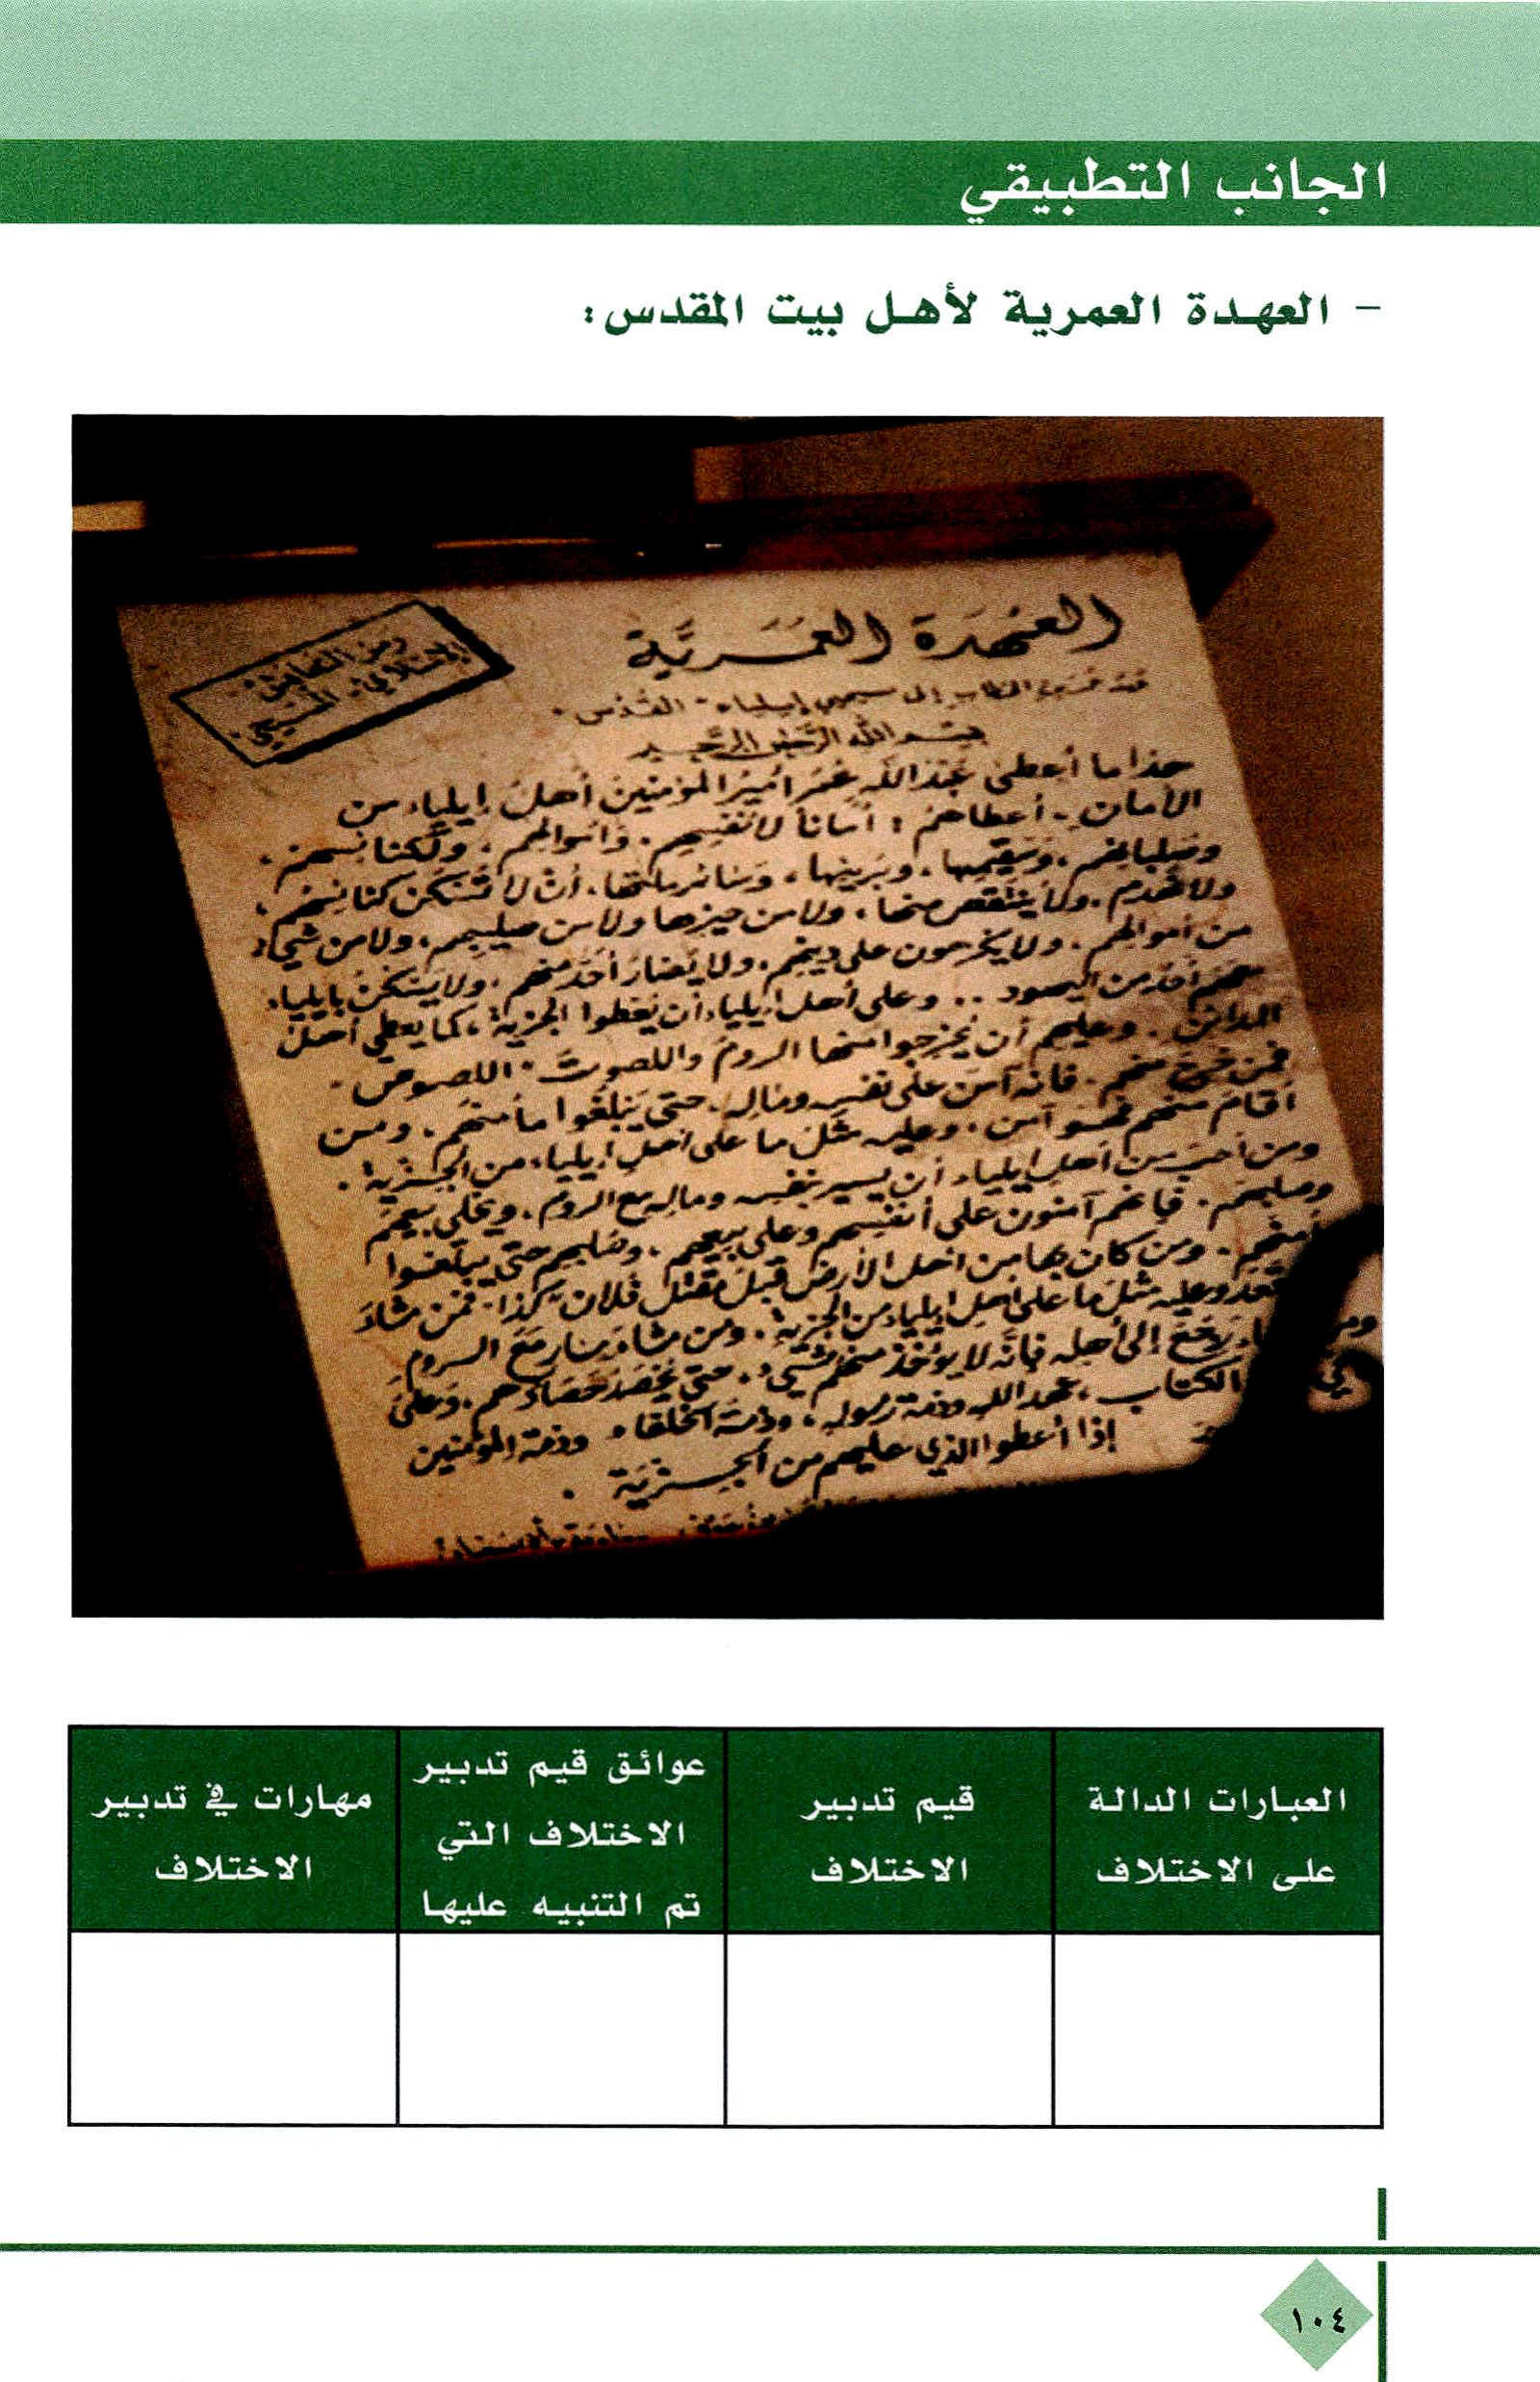 الجانب التطبيقي
- العهدة العمرية لأهل بيت المقدس:
العُهدَة العُمَريَّة
رمز التعايش
الإسلامي المسيحي
إلى مسيحيي إيلياء - القُدس -
بسم الله الرحمن الرحيم
هذا ما أعطى عَبْدُ اللَّهِ عُمَرُ أميرُ المؤمنين أهلَ إيلياء من
الأمان. أعطاهمُ: أماناً لأنفسهم. وأموالهم، ولكنائسهم.
وصلبانهم. وسقيمها، وبريئها، وسائر ملتها. أن لا تُسكن كنائسهم،
ولا تُهدم. ولا يُنتقص منها، ولا من حيزها ولا من صليبهم، ولا من شيء
من أموالهم. ولا يكرهون على دينهم، ولا يُضار أحدٌ منهم، ولا يَسكنُ بإيلياء
معهم أحدٌ من اليهود .. وعلى أهل إيلياء أن يُعطوا الجزية، كما يعطي أهلُ
المدائن. وعليهم أن يُخرجوا منها الرومَ واللصوتَ - اللصوص -
فمن خرج منهم. فإنه آمن على نفسه وماله. حتى يَبلغوا مأمنهم. ومن
أقامَ منهم فهو آمن. وعليه مثلُ ما على أهل إيلياء، من الجزية.
ومن أحبَّ من أهل إيلياء أن يسير بنفسه وماله مع الروم. ويخلي بيعهم
وصلبهم. فإنهم آمنون على أنفسهم وعلى بيعهم، وصلبهم حتى يبلغوا
ومن كان بها من أهل الأرض قبلَ مقتل فلان كذا - فمن شاءَ
وعليه مثلُ ما على أهل إيلياء من الجزية. ومن شاء سار مَعَ الروم
رجَعَ إلى أهله فإنَّه لا يؤخذ منهم شيء. حتى يُحصد حصادهم. وَعلى
الكتاب، عهد الله وذمة رسوله، وذمة الخلفاء وذمة المؤمنين
إذا أعطوا الذي عليهم من الجزية.
العبارات الدالة على الاختلاف
قيم تدبير الاختلاف
عوائق قيم تدبير الاختلاف التي تم التنبيه عليها
مهارات في تدبير الاختلاف
١٠٤